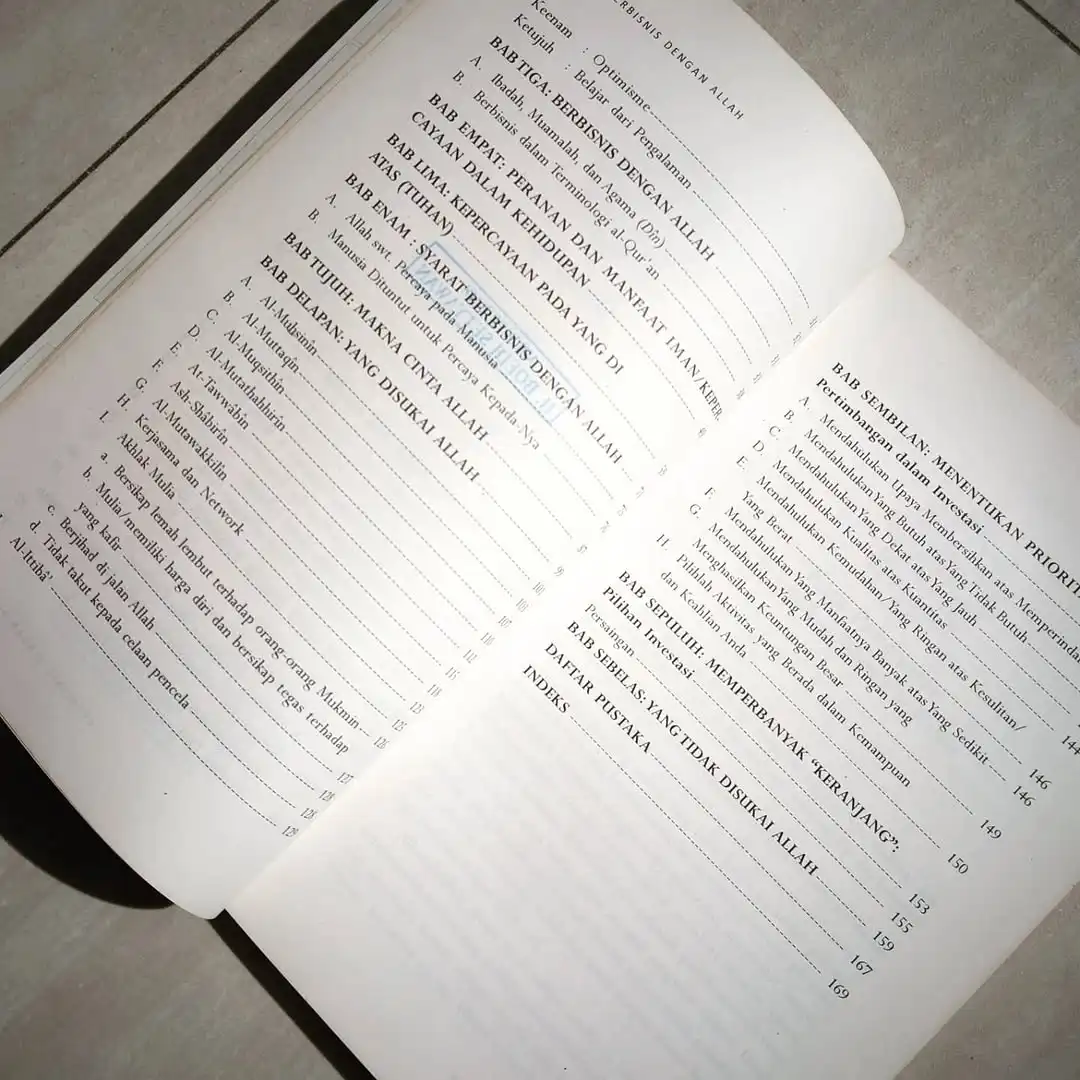 BERBISNIS DENGAN ALLAH
Keenam : Optimisme
Ketujuh : Belajar dari Pengalaman
BAB TIGA: BERBISNIS DENGAN ALLAH
A. Ibadah, Muamalah, dan Agama (Dîn)
B. Berbisnis dalam Terminologi al-Qur'an
BAB EMPAT: PERANAN DAN MANFAAT IMAN/KEPER
CAYAAN DALAM KEHIDUPAN
BAB LIMA: KEPERCAYAAN PADA YANG DI
ATAS (TUHAN)
BAB ENAM : SYARAT BERBISNIS DENGAN ALLAH
A. Allah swt. Percaya pada Manusia
B. Manusia Dituntut untuk Percaya Kepada-Nya
BAB TUJUH: MAKNA CINTA ALLAH
BAB DELAPAN: YANG DISUKAI ALLAH
A. Al-Muhsinîn
B. Al-Muttaqîn
C. Al-Muqsithîn
D. Al-Mutathahhirîn
E. At-Tawwâbîn
F. Ash-Shâbirîn
G. Al-Mutawakkilîn
H. Kerjasama dan Network
I. Akhlak Mulia
a. Bersikap lemah lembut terhadap orang-orang Mukmin
b. Mulia/memiliki harga diri dan bersikap tegas terhadap
yang kafir
c. Berjihad di jalan Allah
d. Tidak takut kepada celaan pencela
Al-Ittibâ'
BAB SEMBILAN: MENENTUKAN PRIORIT
Pertimbangan dalam Investasi
A. Mendahulukan Upaya Membersihkan atas Memperinda
B. Mendahulukan Yang Butuh atas Yang Tidak Butuh
C. Mendahulukan Yang Dekat atas Yang Jauh
D. Mendahulukan Kualitas atas Kuantitas
E. Mendahulukan Kemudahan/Yang Ringan atas Kesulitan/
Yang Berat 144
F. Mendahulukan Yang Manfaatnya Banyak atas Yang Sedikit 146
G. Mendahulukan Yang Mudah dan Ringan yang
Menghasilkan Keuntungan Besar 146
H. Pilihlah Aktivitas yang Berada dalam Kemampuan
dan Keahlian Anda 149
BAB SEPULUH: MEMPERBANYAK “KERANJANG”:
Pilihan Investasi 150
Persaingan 153
BAB SEBELAS: YANG TIDAK DISUKAI ALLAH 155
159
DAFTAR PUSTAKA 167
INDEKS 169